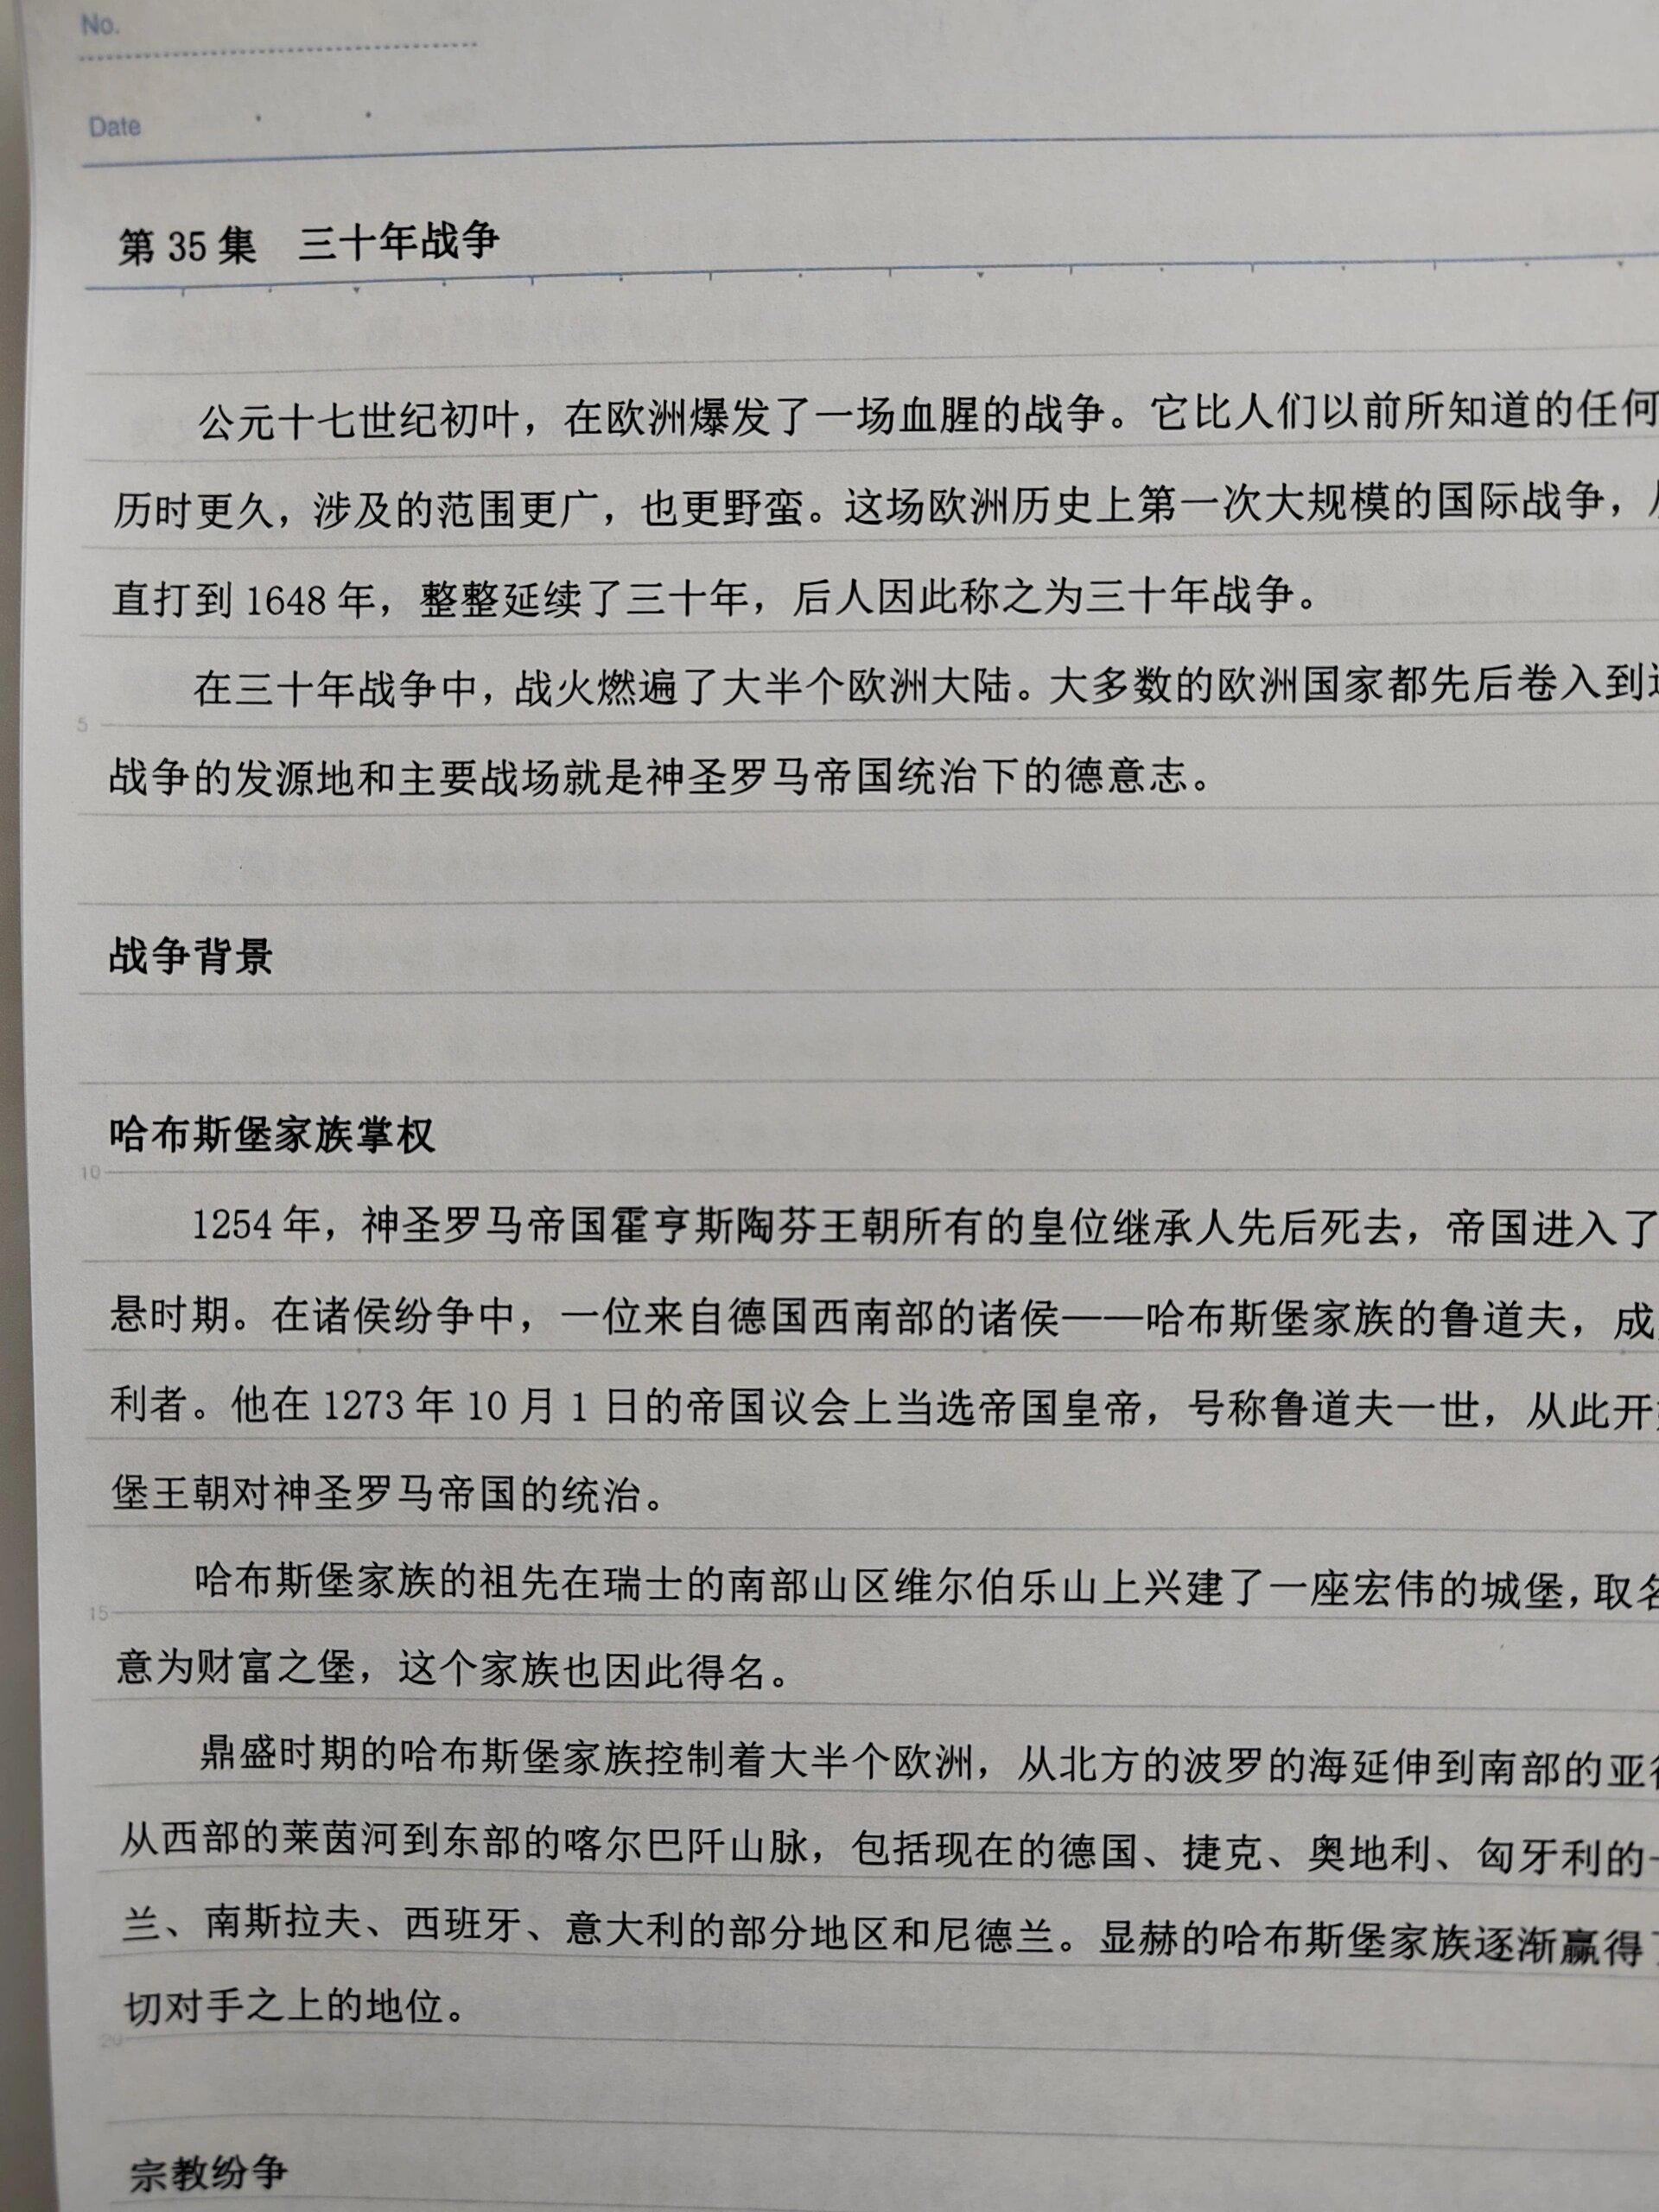 No.
Date
第 35 集　三十年战争
公元十七世纪初叶，在欧洲爆发了一场血腥的战争。它比人们以前所知道的任何
历时更久，涉及的范围更广，也更野蛮。这场欧洲历史上第一次大规模的国际战争，
直打到 1648 年，整整延续了三十年，后人因此称之为三十年战争。
在三十年战争中，战火燃遍了大半个欧洲大陆。大多数的欧洲国家都先后卷入到
5
战争的发源地和主要战场就是神圣罗马帝国统治下的德意志。
战争背景
哈布斯堡家族掌权
10
1254 年，神圣罗马帝国霍亨斯陶芬王朝所有的皇位继承人先后死去，帝国进入了
悬时期。在诸侯纷争中，一位来自德国西南部的诸侯——哈布斯堡家族的鲁道夫，成
利者。他在 1273 年 10 月 1 日的帝国议会上当选帝国皇帝，号称鲁道夫一世，从此开
堡王朝对神圣罗马帝国的统治。
哈布斯堡家族的祖先在瑞士的南部山区维尔伯乐山上兴建了一座宏伟的城堡，取名
15
意为财富之堡，这个家族也因此得名。
鼎盛时期的哈布斯堡家族控制着大半个欧洲，从北方的波罗的海延伸到南部的亚
从西部的莱茵河到东部的喀尔巴阡山脉，包括现在的德国、捷克、奥地利、匈牙利的
兰、南斯拉夫、西班牙、意大利的部分地区和尼德兰。显赫的哈布斯堡家族逐渐赢得
切对手之上的地位。
20
宗教纷争